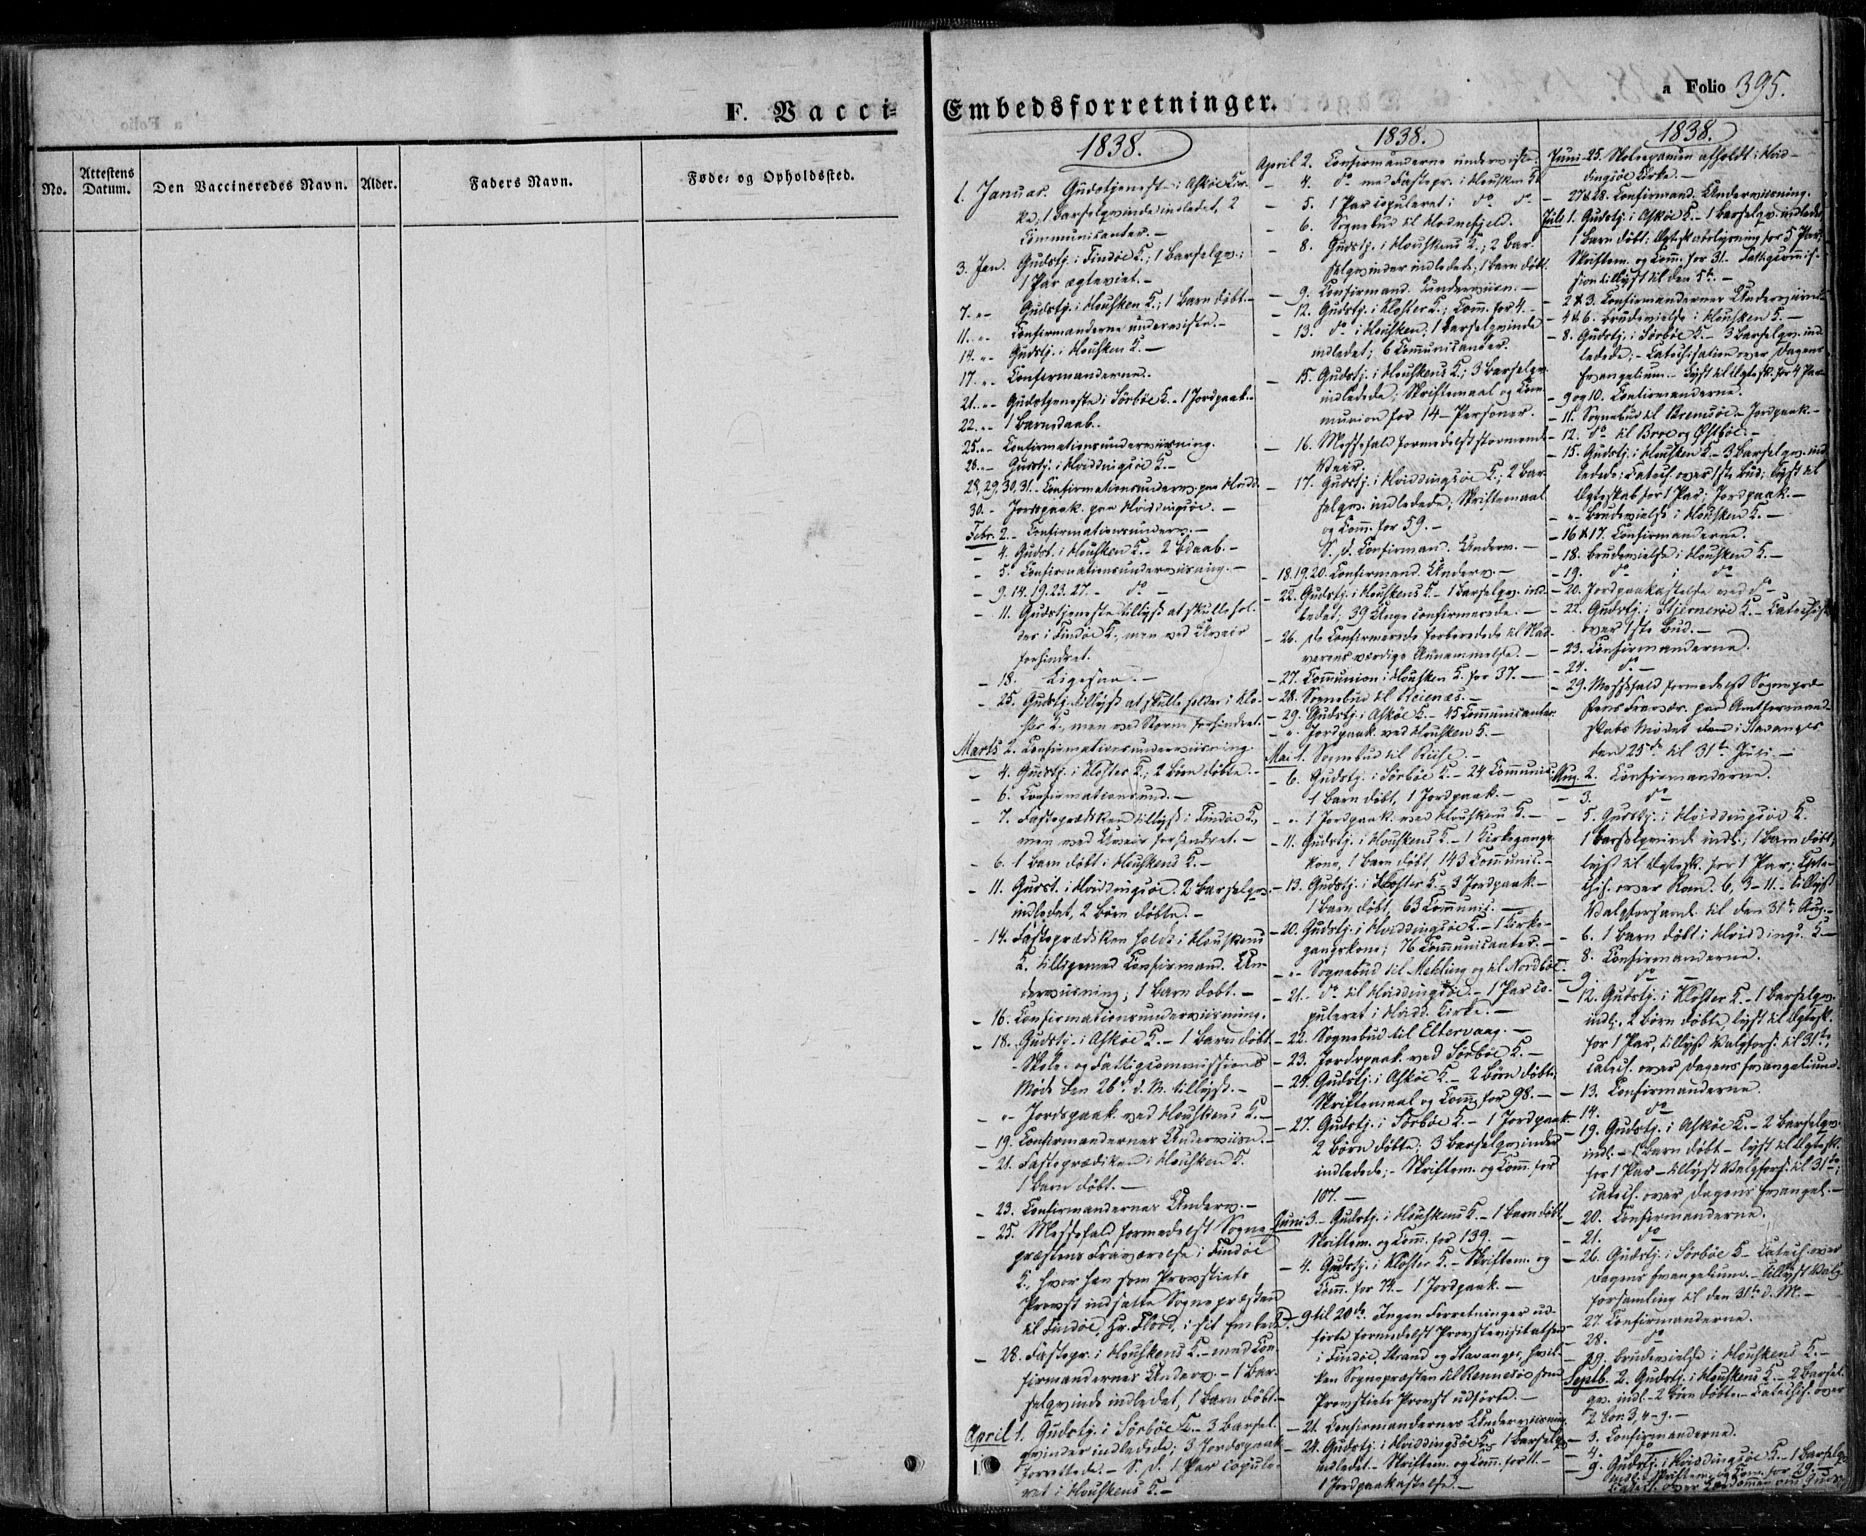 F. Vacci-
No.
Attestens
Datum.
Den Vaccineredes Navn.
Alder.
Faders Navn.
Føde- og Opholdssted.
a Folio 395.
Embedsforretninger.
1838.
1. Januar. Gudstjenest i Askøe Kir-
ke, 1 Barselqvinde indledet, 2
Communicanter. —
3. Jan. Gudstj. i Findöe K.; 1 Barselqv.;
1 Par ægteviet. —
7. " - Gudstj. i Houskens K.; 1 Barn döbt. -
11. " - Confirmanderne underviste. -
14. " - Gudstj. i Housken K. —
17. " - Confirmanderne. -
21. " - Gudstjeneste i Sörböe K. - 1 Jordpaak. -
22. " - 1 Barnedaab. -
25. " - Confirmationsunderviisning.
28. " - Gudstj. i Hviddingsöe K. —
28, 29, 30, 31. - Confirmationsunderv. paa Hvidd.
30. - Jordspaak. paa Hviddingsöe. —
Febr. 2. - Confirmationsunderv. —
- 4. Gudst. i Housken K. - 2 Bdaab. -
- 5. Confirmationsunderviisning. —
- 9. 14. 19. 23. 27. - do —
- 11. Gudstjeneste tillyst at skulle hol-
des i Findöe K., men ved Uveir
forhindret.
- 18. Ligesaa. —
- 25. Gudstj. tillyst at skulle holdes i Klo-
ster K., men ved Storm forhindret.
Marts 2. Confirmationsunderviisning.
- 4. Gudstj. i Kloster K.; 2 Börn döbte. -
- 6. Confirmationsund. —
- 7. Fasteprædiken tillyst i Findöe K.,
men ved Uveir forhindret. —
- 6. 1 Barn döbt i Houskens K. —
- 11. Gudst. i Hviddingsöe. 2 Barselqv.
indledet, 2 Börn döbte. —
- 14. Fasteprædiken holdt i Houskens
K. tilligemed Confirmand. Un-
derviisning; 1 Barn döbt. —
- 16. Confirmationsunderviisning.
- 18. Gudstj. i Askøe K. - 1 Barn döbt.
- Skole- og Fattigcommissions
Möde den 26de d. M. tillyst. —
- " - Jordspaak. ved Houskens K. —
- 19. Confirmandernes Underviisn. —
- 21. Fasteprædiken i Housken K.
1 Barn döbt. —
- 23. Confirmandernes Underv. —
- 25. Messefald formedelst Sogne-
præstens Fraværelse i Findöe
K., hvor han som Provstiets
Provst indsatte Sognepræsten
til Findöe, Hr. Flood, i sit Embede. -
- 28. Fastepr. i Houskens K. - med Con-
firmandernes Underv. - 1 Bar-
selqvinde indledet, 1 Barn döbt. -
April 1. Gudstj. i Sörböe K. - 3 Barsel-
qvinder indledede; 3 Jordspaak.
forrettede. - S. D. 1 Par copule-
ret i Houskens K. —
1838.
April 2. Confirmanderne underviste.
- 4. do med Fastepr. i Housken K.
- 5. 1 Par copuleret i do do -
- 6. Sognebud til Hodnefjeld.
- 8. Gudstj. i Houskens K.; 2 Bar-
selqvinder indledede; 1 Barn döbt.
- 9. Confirmand. Underviisn. —
- 12. Gudstj. i Kloster K.; Comm. for 4. -
- 13. do i Housken; 1 Barselqvinde
indledet; 6 Communicanter.
- 15. Gudstj. i Houskens K.; 3 Barselqv.
indledede; Skriftemaal og Com-
munion for 14 - Personer.
- 16. Messefald formedelst stormende
Veir.
- 17. Gudstj. i Hviddingsöe K.; 2 Bar-
selqv. indledede; Skriftemaal
og Comm. for 59. —
S. D. Confirmand. Underv. —
- 18. 19. 20. Confirmand. Underv. —
- 22. Gudstj. i Houskens K. - 1 Barselqv. ind-
ledet; 39 Unge confirmerede. —
- 26. De Confirmerede forberedede til Nad-
verens værdige Annammelse. —
- 27. Communion i Housken K. for 37. —
- 28. Sognebud til Reienæs. —
- 29. Gudstj. i Askøe K. - 45 Communicanter.
- " Jordpaak. ved Housken K. —
Mai 1. Sognebud til Reise. —
- 6. Gudstj. i Sörböe K. - 24 Communic.
1 Barn döbt, 1 Jordpaak. —
- " 1 Jordpaak. ved Houskens K. —
- 11. Gudstj. i Houskens K. - 1 Kirkegangs-
kone, 1 Barn döbt 143 Communic. -
- 13. Gudstj. i Kloster K. - 3 Jordpaak. -
1 Barn döbt, 63 Communic. —
- 20. Gudstj. i Hviddingsöe K. - 1 Kirke-
gangskone; 76 Communicanter. —
- " - Sognebud til Mekling og til Nordböe.
- 21. - do til Hviddingsöe. - 1 Par co-
puleret i Hvidd. Kirke. —
- 22. Sognebud til Eltervaag. —
- 23. Jordspaak. ved Sörböe K. —
- 24. Gudstj. i Askøe K. - 2 Börn döbte,
Skriftemaal og Comm. for 98. —
- 27. Gudstj. i Sörböe K. - 1 Jordpaak.
2 Börn döbte, 3 Barselqvinder
indledede; - Skriftem. og Comm. for
107. —
Juni 3. - Gudstj. i Houskens K. - 1 Barn döbt,
Skriftem. og Comm. for 139. —
- 4. Gudstj. i Kloster K. - Skriftem. og
Comm. for 74. - 1 Jordpaak. —
- 9 til 20de. Ingen Forretninger ud-
förte formedelst Provstevisitatsen
i Findöe, Strand og Stavanger, hvil-
ken Sognepræsten til Rennesöe som
Provstiets Provst udförte. —
- 21. Confirmandernes Underviisning.
- 24. Gudstj. i Hviddingsöe K. - 1 Barselqv.
indledet. - Skriftem. og Comm. for 11. —
1 Jordpaakastelse. —
1838.
Juni 25. Skoleexamen afholdt i Hvid-
dingsöe Kirke. —
- 27 & 28. Confirmand. Underviisning.
Juli 1. Gudstj. i Askøe K. - 1 Barselqv. indledet,
1 Barn döbt; Ægteskabslysning for 5 Par;
Skriftem. og Comm. for 31. Fattigcommis-
sion tillyst til den 5te. —
- 2 & 3. Confirmandernes Underviisn. -
- 4 & 6. Brudevielse i Housken K. —
- 8. Gudstj. i Sörböe K. - 3 Barselqv. ind-
ledede; - Catechisation over Dagens
Evangelium. - Lyst til Ægtesk. for 4 Par.
- 9 og 10. Confirmanderne.
- 11. Sognebud til Bremsöe. - Jordpaak. —
- 12. do til Broe og Østböe. —
- 15. Gudstj. i Housken K. - 3 Barselqv. ind-
ledede; Catech. over 1ste Bud; Lyst til
Ægteskab for 1 Par; Jordpaak. —
- " Brudevielse i Housken K. —
- 16 & 17. Confirmanderne.
- 18. Brudevielse i Housken K. —
- 19. do i do
- 20. Jordpaakastelse ved do
- 22. Gudstj. i Stjerneröe K. - Catechis.
over 1ste Bud. —
- 23. Confirmanderne.
- 24. do —
- 29. Messefald formedelst Sognepræ-
stens Fravær. paa Amtformand-
skabs Mödet i Stavanger
den 25de til 31te Juli. —
Aug. 2. Confirmanderne.
- 3. do
- 5. Gudstj. i Hviddingsöe K.
1 Barselqvinde indl., 1 Barn döbt,
lyst til Ægtesk. for 1 Par; Cate-
chis. over Rom. 6, 3-11. - tillyst
Valgforsaml. til den 31te Aug. -
- 6. 1 Barn döbt i Hviddings. K. —
- 8. Confirmanderne.
- 9. do —
- 12. Gudstj. i Kloster K. - 1 Barselqv.
indl. 2 Börn döbte, lyst til Ægtesk.
for 1 Par, tillyst Valgfors. til 31te,
Catech. over Dagens Evangelium.
- 13. Confirmanderne.
- 14. do
- 19. Gudstj. i Askøe K. - 2 Barselqv.
indl. - 1 Barn döbt - lyst til Ægtesk.
for 1 Par - tillyst Valgfors. til 31te;
Catech. over Dagens Evangel. —
- 20. Confirmanderne.
- 21. do
- 26. Gudstj. i Sörböe K. - Catech. over
Dagens Evangelium. - tillyst Valg-
forsamling til den 31te d. M. —
- 27. Confirmanderne.
- 28. do
- 29. Brudevielse i Houskens K. —
Septb. 2. Gudstj. i Houskens K. - 2 Barsel-
qv. indl. - 2 Börn döbte - Catechis. over
2 Cor 3, 4-9. —
- 3. Confirmanderne.
- 4. do
- 9. Gudstj. i Hviddingsöe K. - 1 Barselqv.
indl. Skriftem. og Com. for 29. -
Catech. over